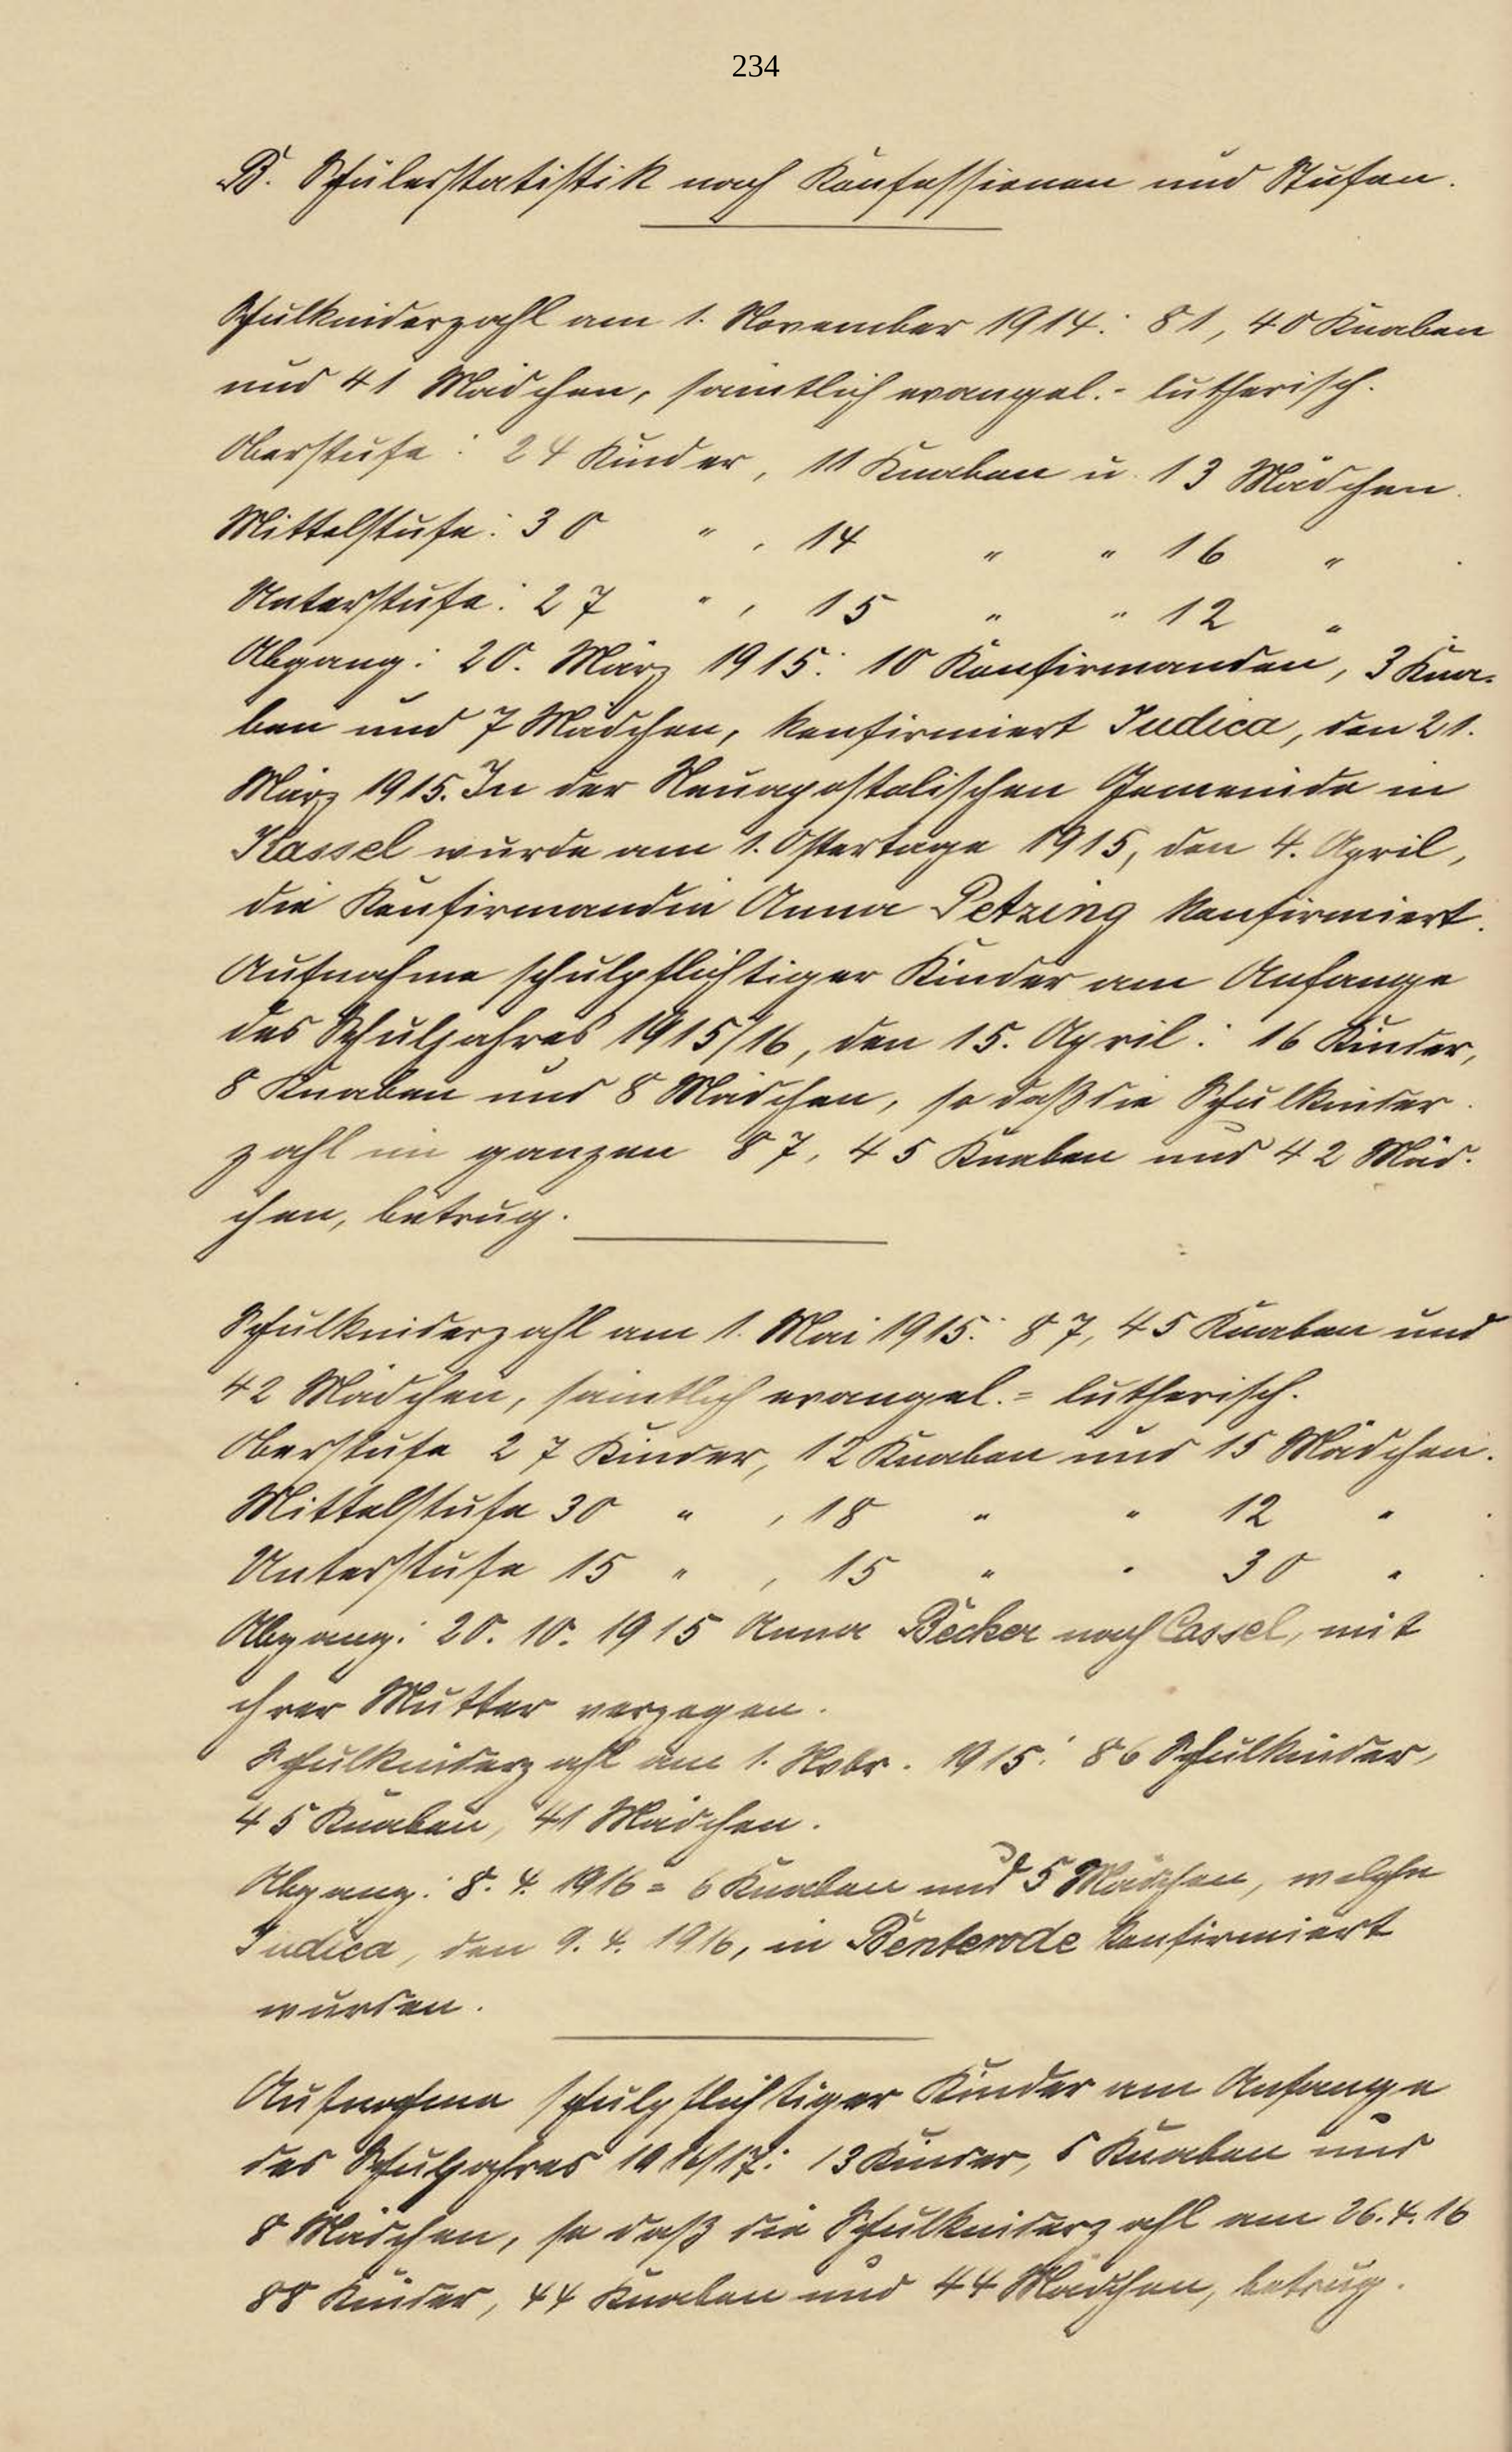 234
B. Schülerstatistik nach Konfessionen und Stufen.
Schulkinderzahl am 1. November 1914: 81, 40 Knaben
und 41 Mädchen, sämtlich evangel.- lutherisch.
Oberstufe: 24 Kinder, 11 Knaben u. 13 Mädchen.
Mittelstufe: 30 " , 14 " " 16 " .
Unterstufe: 27 " , 15 " " 12 "
Abgang: 20. März 1915: 10 Konfirmanden, 3 Kna-
ben und 7 Mädchen, konfirmiert Judica, den 21.
März 1915. In der Neuapostolischen Gemeinde in
Kassel wurde am 1. Ostertage 1915, den 4. April,
die Konfirmandin Anna Petzing konfirmiert.
Aufnahme schulpflichtiger Kinder am Anfange
des Schuljahres 1915/16, den 15. April: 16 Kinder,
8 Knaben und 8 Mädchen, so daß die Schulkinder-
zahl im ganzen 87, 45 Knaben und 42 Mäd-
chen, betrug.
Schulkinderzahl am 1. Mai 1915: 87, 45 Knaben und
42 Mädchen, sämtlich evangel.= lutherisch.
Oberstufe 27 Kinder, 12 Knaben und 15 Mädchen.
Mittelstufe 30 " , 18 " " 12 " .
Unterstufe 15 " , 15 " " 30 " .
Abgang: 20. 10. 1915 Anna Becker nach Cassel, mit
ihrer Mutter verzogen.
Schulkinderzahl am 1. Nobr. 1915: 86 Schulkinder,
45 Knaben, 41 Mädchen.
Abgang: 8. 4. 1916 = 6 Knaben und 5 Mädchen, welche
Judica, den 9. 4. 1916, in Benterode konfirmiert
wurden.
Aufnahme schulpflichtiger Kinder am Anfange
des Schuljahres 1916/17: 13 Kinder, 5 Knaben und
8 Mädchen, so daß die Schulkinderzahl am 26. 4. 16
88 Kinder, 44 Knaben und 44 Mädchen, betrug.